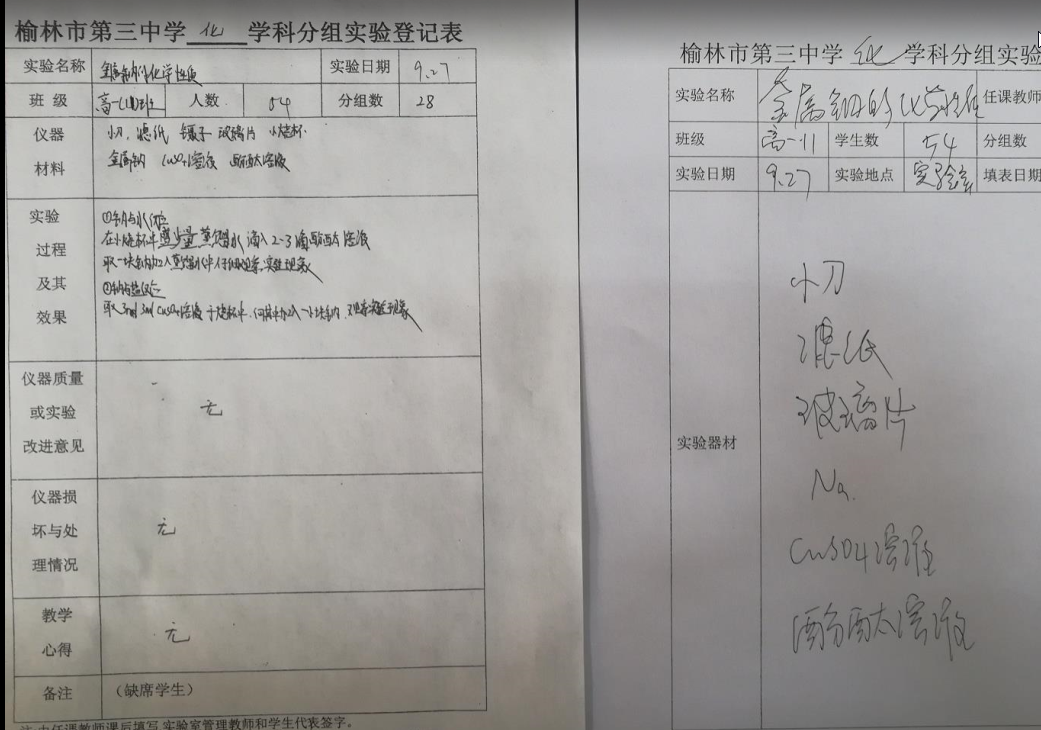 榆林市第三中学 化 学科分组实验登记表
实验名称 金属钠的化学性质 实验日期 9.27
班 级 高一(11)班 人数 54 分组数 28
仪器 小刀、滤纸 镊子 玻璃片 小烧杯
材料 金属钠 CuSO4溶液 酚酞溶液
实验 ①钠与水反应
过程 在小烧杯中盛少量蒸馏水 滴入2-3滴酚酞溶液
及其 取一块钠加入蒸馏水中仔细观察,实验现象
效果 ②钠与盐反应
取3ml CuSO4溶液于烧杯中,向其中加入一小块钠,观察实验现象
仪器质量
或实验 无
改进意见
仪器损
坏与处 无
理情况
教学
心得 无
备注 (缺席学生)
由任课教师课后填写,实验室管理教师和学生代表签字。
榆林市第三中学 化 学科分组实验
实验名称 金属钠的化学性质 任课教师
班级 高一.11 学生数 54 分组数
实验日期 9.27 实验地点 实验室 填表日期
实验器材
小刀
滤纸
玻璃片
Na
CuSO4溶液
酚酞溶液